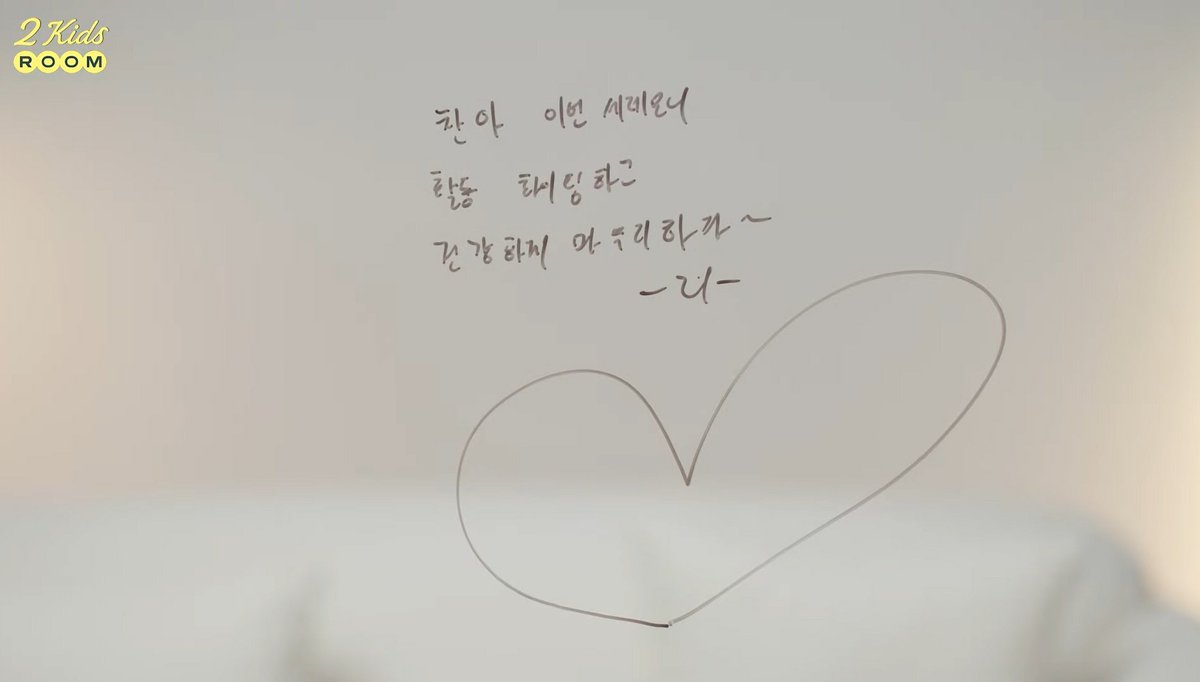 2 Kids
ROOM
찬아 이번 세레모니
활동 화이팅하고
건강하게 마무리하자~
-리-